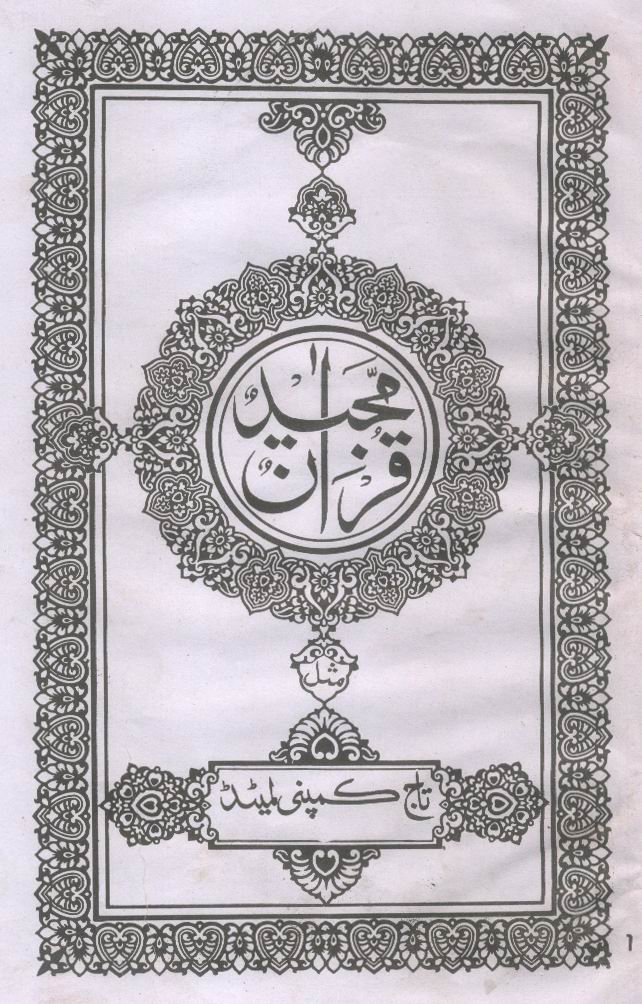 قرآن مجید
مثل
تاج کمپنی لمیٹڈ
۱